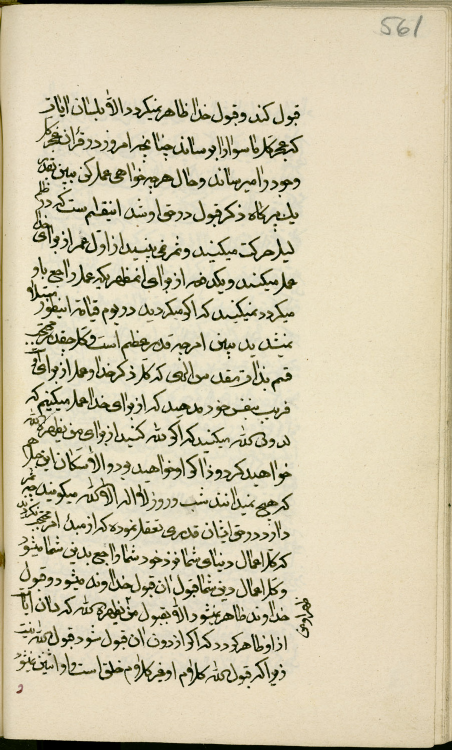 561
قبول کند و قول خدا ظاهر نمیگردد الا بلسان ایات
که عجز کل ما سوا را برساند چنانچه امروز در قران عجز کل
وجود را میرساند و حال هرچه خواهی عمل کن ببین بقدر
یک پر کاه ذکر قبول در حق او شد اینقدر است که در کل
لیل حرکت میکنید و ثمر نمی بینید از اول عمر از برای خدا
عمل میکنید و یکدفعه از برای من یظهره که عمل راجع باو
میگردد نمیکنید که اگر میکردید در یوم قیامة اینطور مبتلا
نمیشدید ببین امر چه قدر عظیم است و کل چقدر محتجب
قسم بذات مقدس الهی که کل ذکر خدا و عمل از برای او
فریب بنفس خود مدهید که از برای خدا عمل میکنیم که
لدون الله میکنید که اگر لله کنید از برای من یظهره الله
خواهید کرد و ذاکر او خواهید بود و الا سکان این جبل
که هیچ نمیدانند شب و روز لا اله الا الله میگویند چه ثمر
دارد در حق ایشان قدری تعقل نموده که از مبدء امر محتجب نگردید
که کل اعمال دنیای شما نزد خود شما راجع بدین شما میشود
و کل اعمال دین شما بقبول ان قول خداوند میشود و قول
خداوند ظاهر نمیشود الا بقبول من یظهره الله که بان ایات
از او ظاهر گردد که اگر از دون ان قبول شود قبول الله نیست
زیرا که قبول الله کلام او و غیر کلام خلق است و او اثنین نمیشود